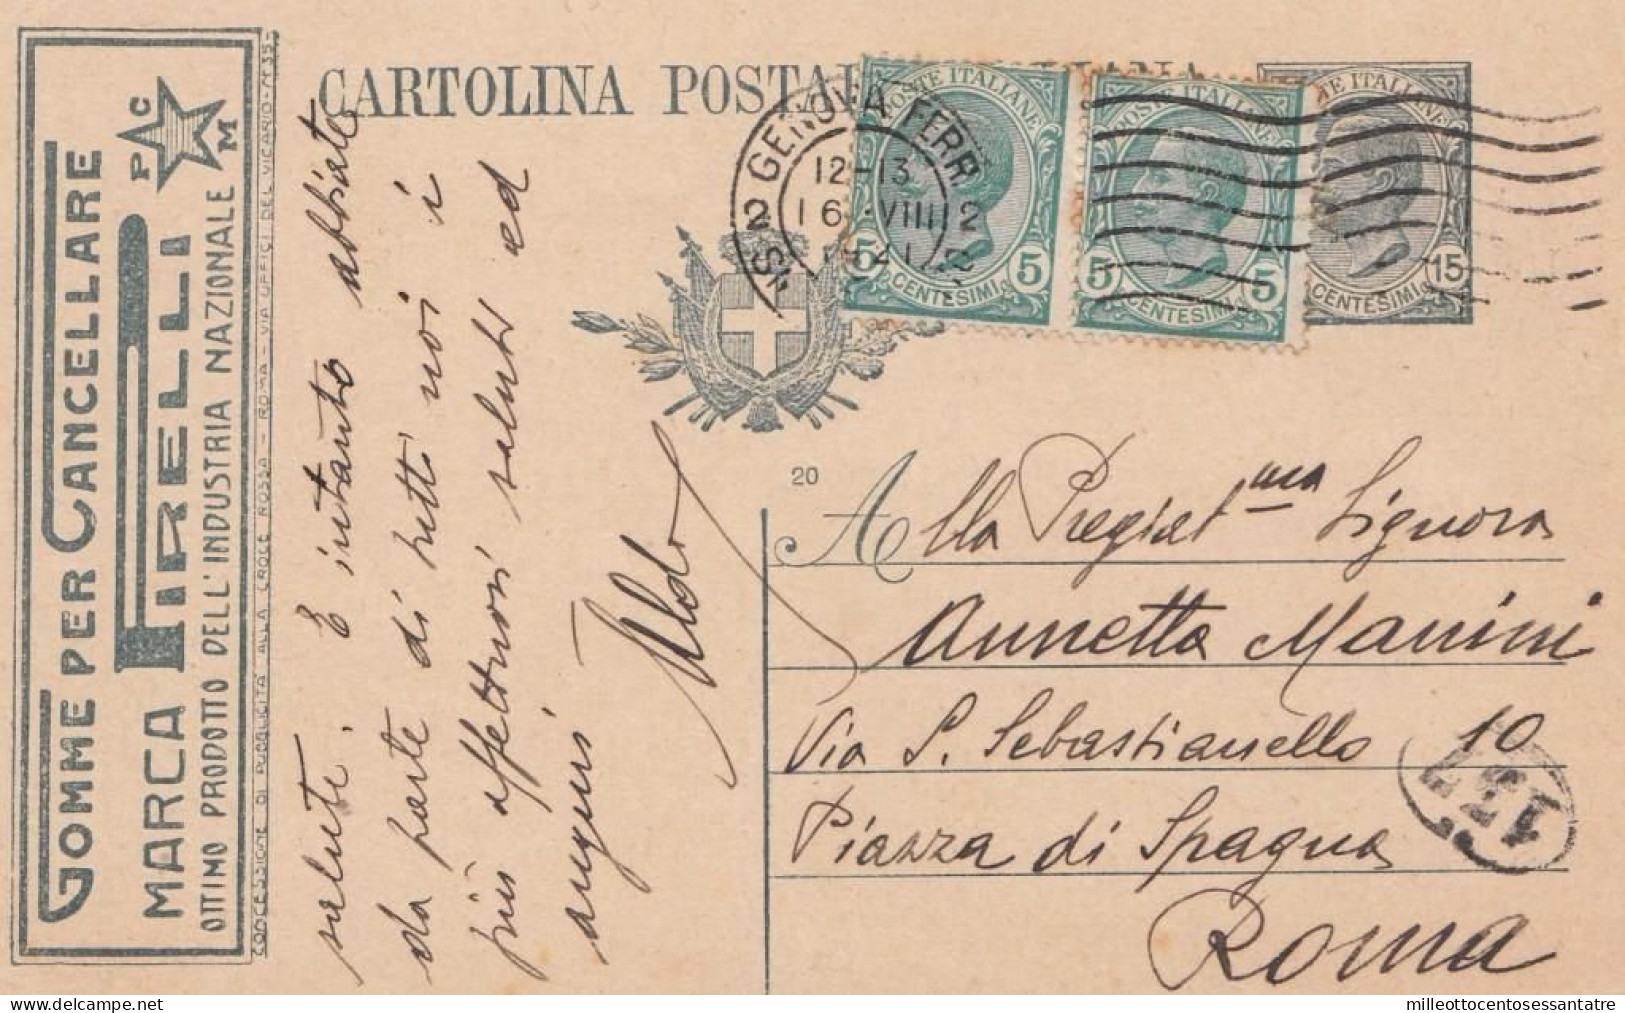 CARTOLINA POSTA
GOMME PER CANCELLARE
MARCA PIRELLI
P C M
OTTIMO PRODOTTO DELL'INDUSTRIA NAZIONALE
CONCESSIONE DI PUBBLICITÀ ALLA CROCE ROSSA - ROMA - VIA UFFICI DEL VICARIO - N. 35 -
salute. E intanto abbiate
da parte di tutti noi i
più affettuosi saluti ed
auguri
Aldo
GENOVA FERR.
12-13
16 VIII
POSTE ITALIANE
5 CENTESIMI 5
POSTE ITALIANE
5 CENTESIMI 5
TE ITALIANE
CENTESIMI 15
20
Alla Pregiat.ma Signora
Annetta Mannini
Via S. Sebastianello 10
Piazza di Spagna
Roma
delcampe.net
milleottocentosessantatre